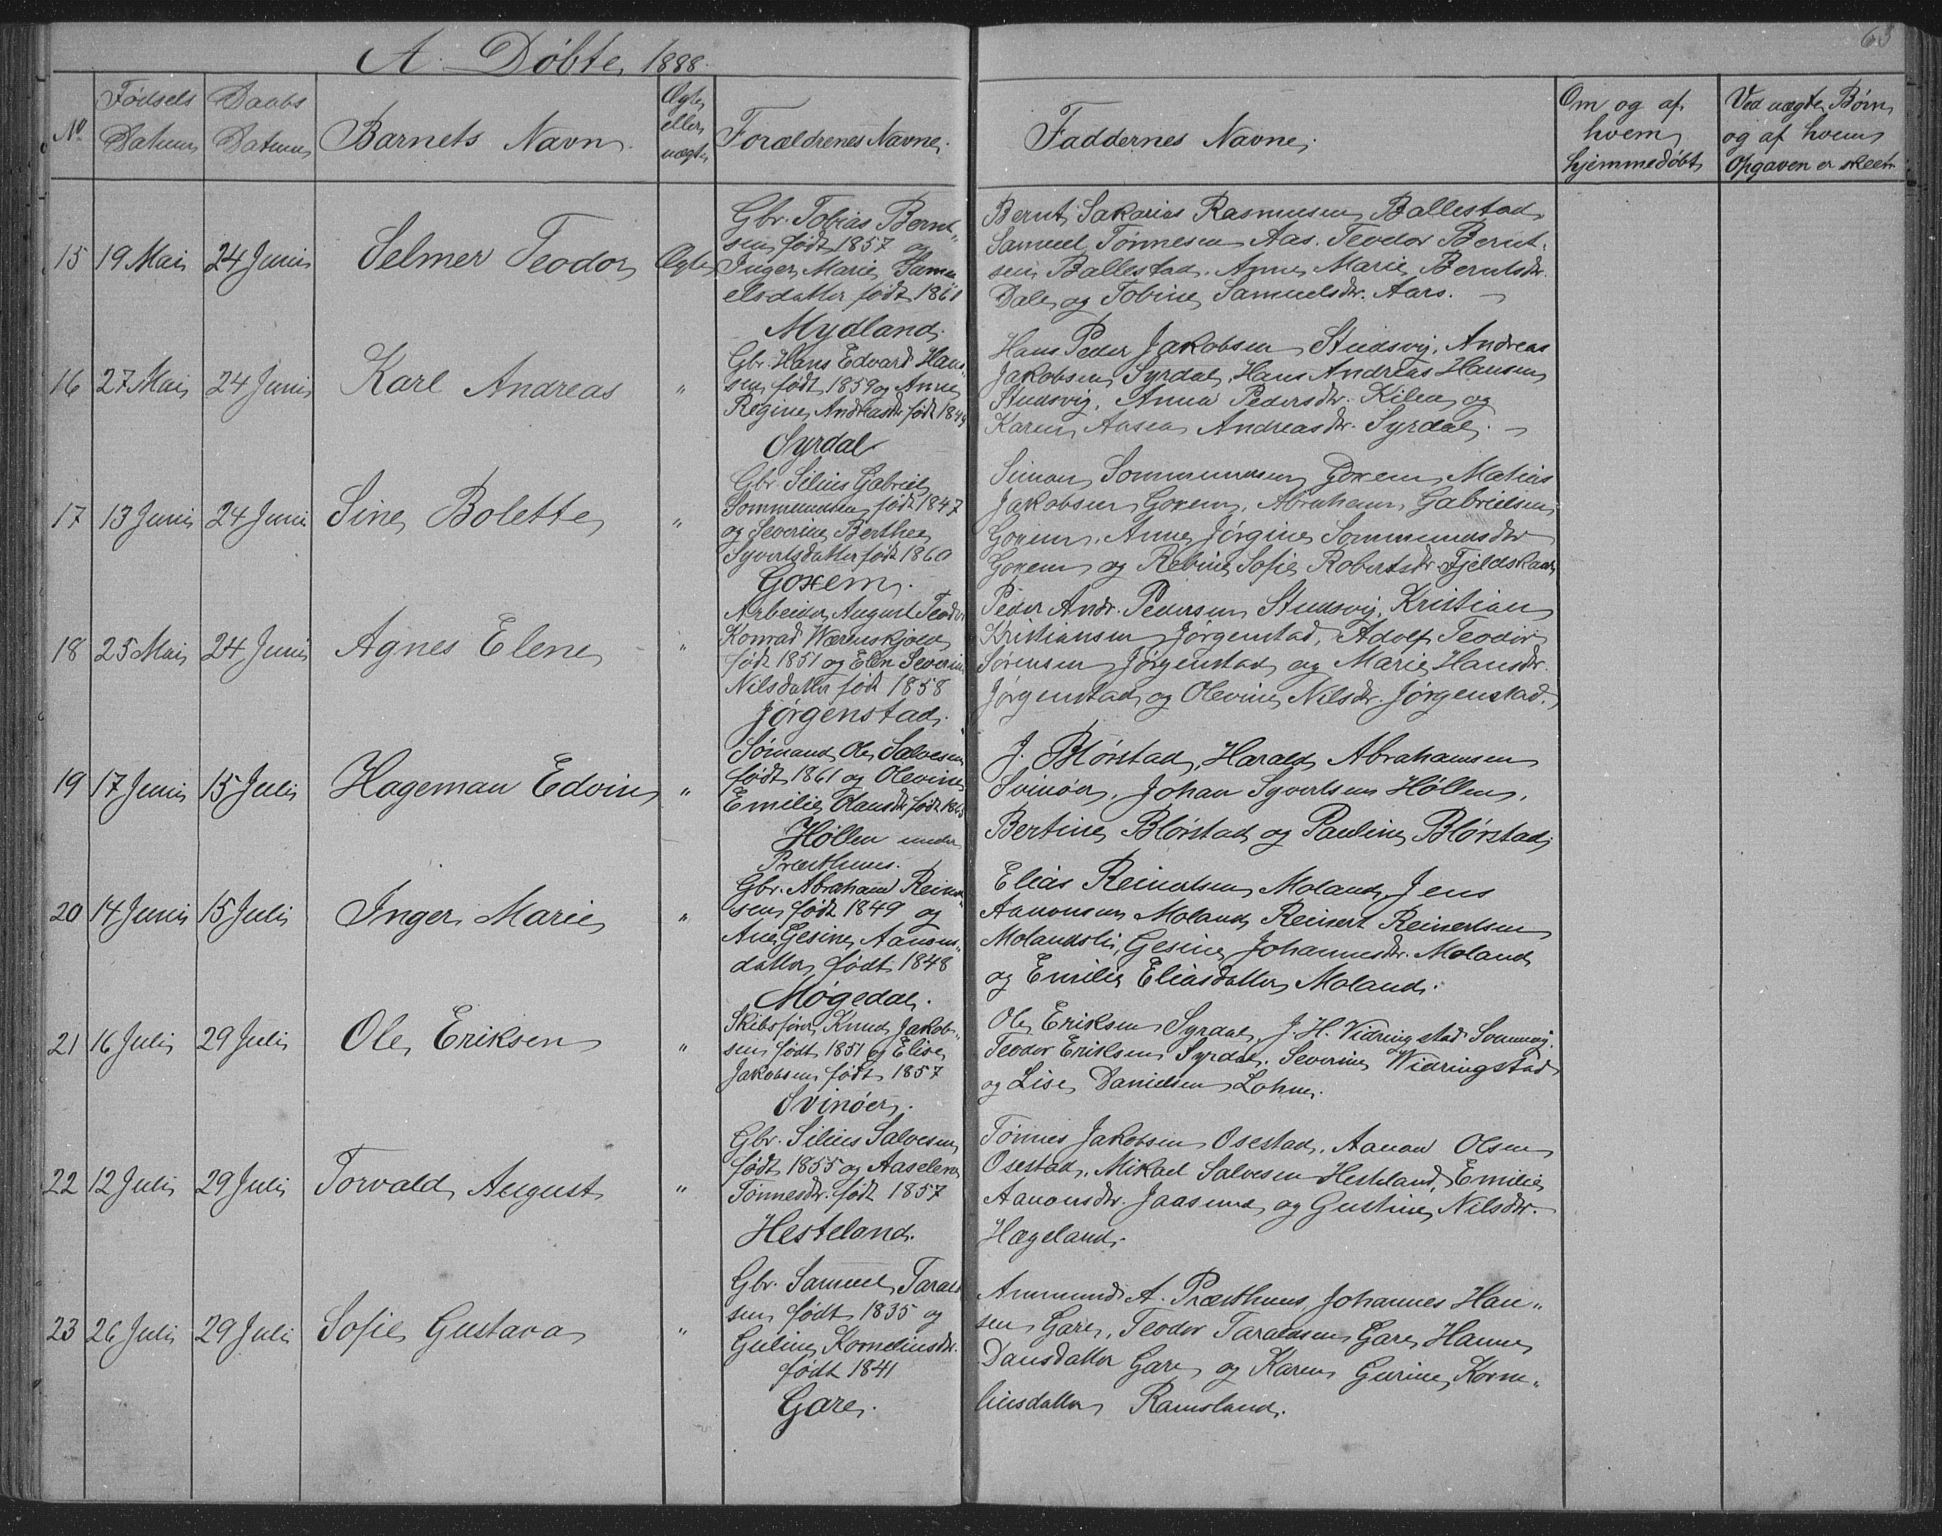 63
A. Døbte, 1888.
No.
Fødsels Datum
Daabs Datum
Barnets Navn.
Ægte eller uægte
Forældrenes Navne.
Faddernes Navne.
Om og af hvem hjemmedøbt
Ved uægte Børn og af hvem Opgaven er skeet.
15 19 Mai 24 Juni Selmer Teodor Ægte
Gbr. Tobias Bernt-
sen født 1857 og
Inger Marie Samu
elsdatter født 1861
Mydland.
Bernt Sakarias Rasmusen Ballestad,
Samuel Tønnesen Aas. Teodor Bernt-
sen Ballestad. Anne Marie Berntsdr.
Dale og Tobine Samuelsdr. Aars. —
16 27 Mai 24 Juni Karl Andreas "
Gbr. Hans Edvard Han-
sen født 1859 og Anne
Regine Andreasdr født 1849
Syrdal
Hans Peder Jakobsen Studsvig, Andreas
Jakobsen Syrdal, Hans Andreas Hansen
Studsvig, Anna Pedersdr. Kilen og
Karen Aasea Andreasdr. Syrdal. —
17 13 Juni 24 Juni Sine Bolette "
Gbr. Silius Gabriel
Sommundsen født 1847
og Severine Berthea
Syvertsdatter født 1860
Goxem.
Simon Sommundsen Goxem, Matias
Jakobsen Goxem, Abraham Gabrielsen
Goxem, Anne Jørgine Sommundsdr
Goxem og Rebine Sofie Robertsdr Fjeldskaar
18 25 Mai 24 Juni Agnes Elene "
Arbeider August Teodor
Konrad Wærenskjold
født 1851 og Elen Severine
Nilsdatter født 1858
Jørgenstad.
Peder Andr. Pedersen Studsvig, Kristian
Kristiansen Jørgenstad, Adolf Teodor
Sørensen Jørgenstad og Marie Hansdr.
Jørgenstad og Olevine Nilsdr. Jørgenstad.
19 17 Juni 15 Juli Hageman Edvin "
Sømand Ole Salvesen
født 1861 og Olevine
Emilie Olausdr født 1865
Høllen under
Præsthuus.
J. Blørstad, Harald Abrahamsen
Svinøer, Johan Syvertsen Høllen,
Bertine Blørstad og Pauline Blørstad,
20 14 Juni 15 Juli Inger Marie "
Gbr. Abraham Reinert-
sen født 1849 og
Ane Gesine Aanons-
datter født 1848
Møgedal.
Elias Reinertsen Moland, Jens
Aanonsen Moland, Reinert Reinertsen
Molandsli, Gesine Johannesdr. Moland
og Emilie Eliasdatter Moland.
21 16 Juli 29 Juli Ole Eriksen "
Skibsfører Knud Jakob-
sen født 1851 og Elise
Jakobsen født 1857
Svinøer.
Ole Eriksen Syrdal, J. H. Vidringstad
Teodor Eriksen Syrdal, Severine Widringstad
og Lise Danielsen Lohne.
22 12 Juli 29 Juli Torvald August "
Gbr. Silius Salvesen
født 1855 og Aaselena
Tønnesdr. født 1857
Hesteland.
Tønnes Jakobsen Osestad, Aanon Olsen
Osestad, Mikael Salvesen Hesteland, Emilie
Aanonsdr. Jaasund og Gustine Nilsdr.
Hægeland.
23 26 Juli 29 Juli Sofie Gustava "
Gbr. Samuel Tarald
sen født 1835 og
Guline Korneliusdr.
født 1841
Gare.
Ammund A. Præsthuus, Johannes Han-
sen Gare, Teodor Taraldsen Gare, Hanne
Dansdatter Gare og Karen Gurine Korne-
liusdatter Ramsland.